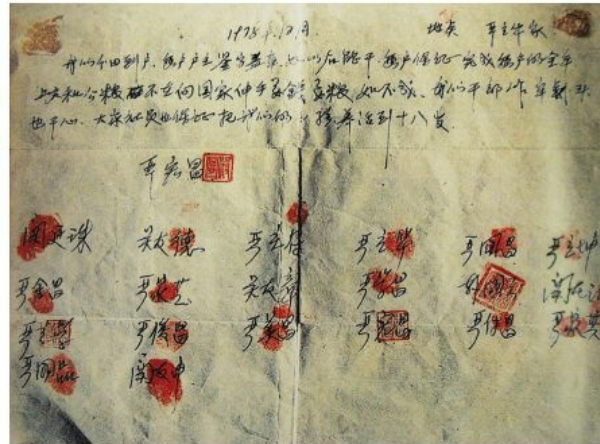 1978年12月 地点 严立华家
我们分田到户,每户户主签字盖章,如以后能干,每户保证完成每户的全年
上交和公粮 不在向国家伸手要钱要粮,如不成,我们干部作牢刹头
也干心,大家社员也保证把我们的小孩养活到十八岁
严宏昌
关廷珠 关友德 严立符 严立华 严国昌 严立坤
严金昌 严家芝 关友章 严学昌 韩国云 关友江
严立学 严俊昌 严美昌 严付昌
严国品 关友申